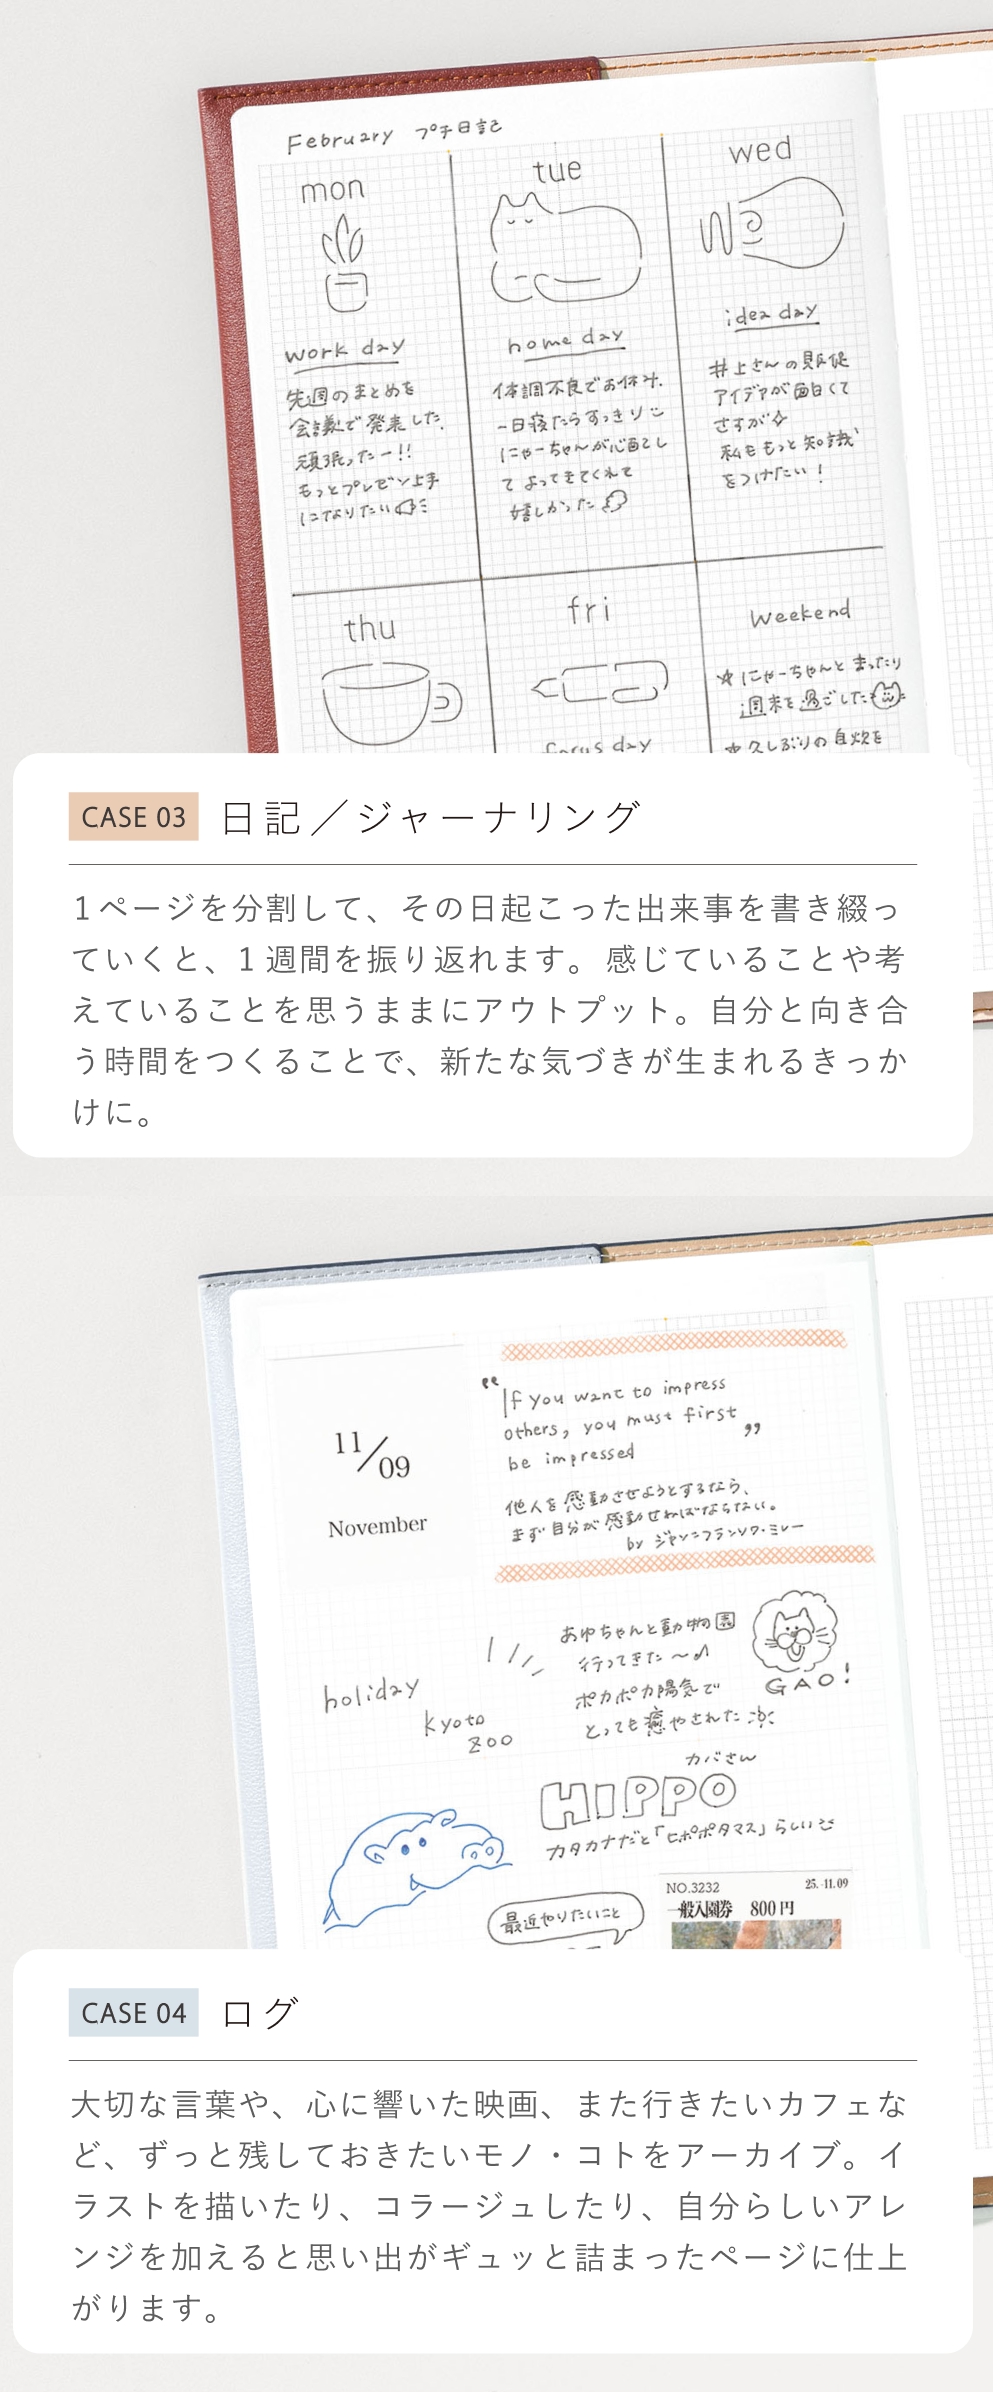 February プチ日記
mon
work day
先週のまとめを
会議で発表した。
頑張ったー!!
もっとプレゼン上手
になりたい
tue
home day
体調不良でお休み.
一日寝たらすっきり
にゃーちゃんが心配し
て よってきてくれて
嬉しかった
wed
idea day
井上さんの販促
アイデアが面白くて
さすが
私ももっと知識
をつけたい!
thu
fri
focus day
Weekend
☆にゃーちゃんと まったり
週末を過ごした
☆久しぶりの自炊を
CASE 03 日記／ジャーナリング
1ページを分割して、その日起こった出来事を書き綴っ
ていくと、1 週間を振り返れます。感じていることや考
えていることを思うままにアウトプット。自分と向き合
う時間をつくることで、新たな気づきが生まれるきっか
けに。
11/09
November
“If you want to impress
others, you must first
be impressed”
他人を感動させようとするなら、
まず自分が感動せねばならない。
by ジャン＝フランソワ・ミレー
holiday
kyoto
zoo
あゆちゃんと動物園
行ってきた〜♪
ポカポカ陽気で
とっても癒やされた
GAO!
カバさん
HIPPO
カタカナだと「ヒポポタマス」らしい
最近やりたいこと
NO.3232 25.-11.09
一般入園券 800円
CASE 04 ログ
大切な言葉や、心に響いた映画、また行きたいカフェな
ど、ずっと残しておきたいモノ・コトをアーカイブ。イ
ラストを描いたり、コラージュしたり、自分らしいアレ
ンジを加えると思い出がギュッと詰まったページに仕上
がります。